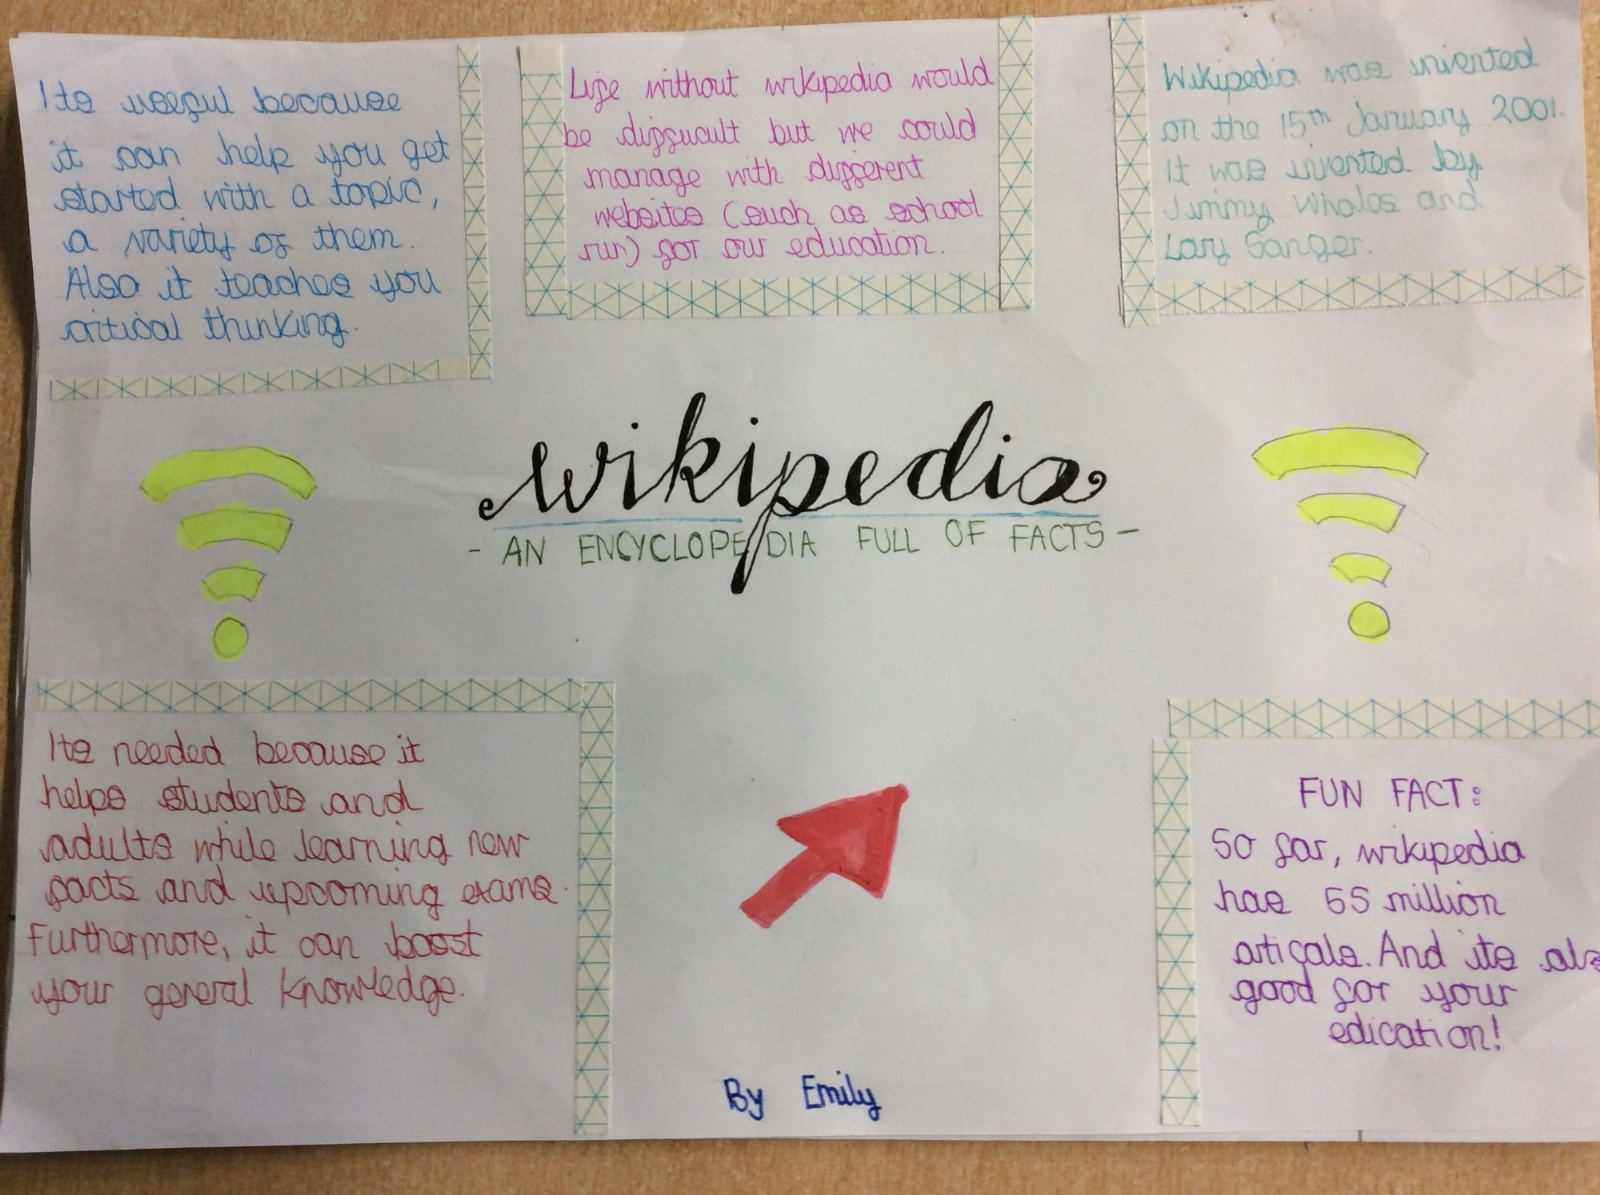 Its useful because
it can help you get
started with a topic,
a variety of them.
Also it teaches you
critical thinking.
Life without wikipedia would
be diffucult but we could
manage with different
websites (such as school
run) for our education.
Wikipedia was invented
on the 15th January 2001.
It was invented by
Jimmy Whales and
Lary Sanger.
wikipedia
- AN ENCYCLOPEDIA FULL OF FACTS -
Its needed because it
helps students and
adults while learning new
facts and upcoming exams.
Furthermore, it can boost
your general knowledge.
FUN FACT:
So far, wikipedia
has 55 million
articals. And its also
good for your
edication!
By Emily